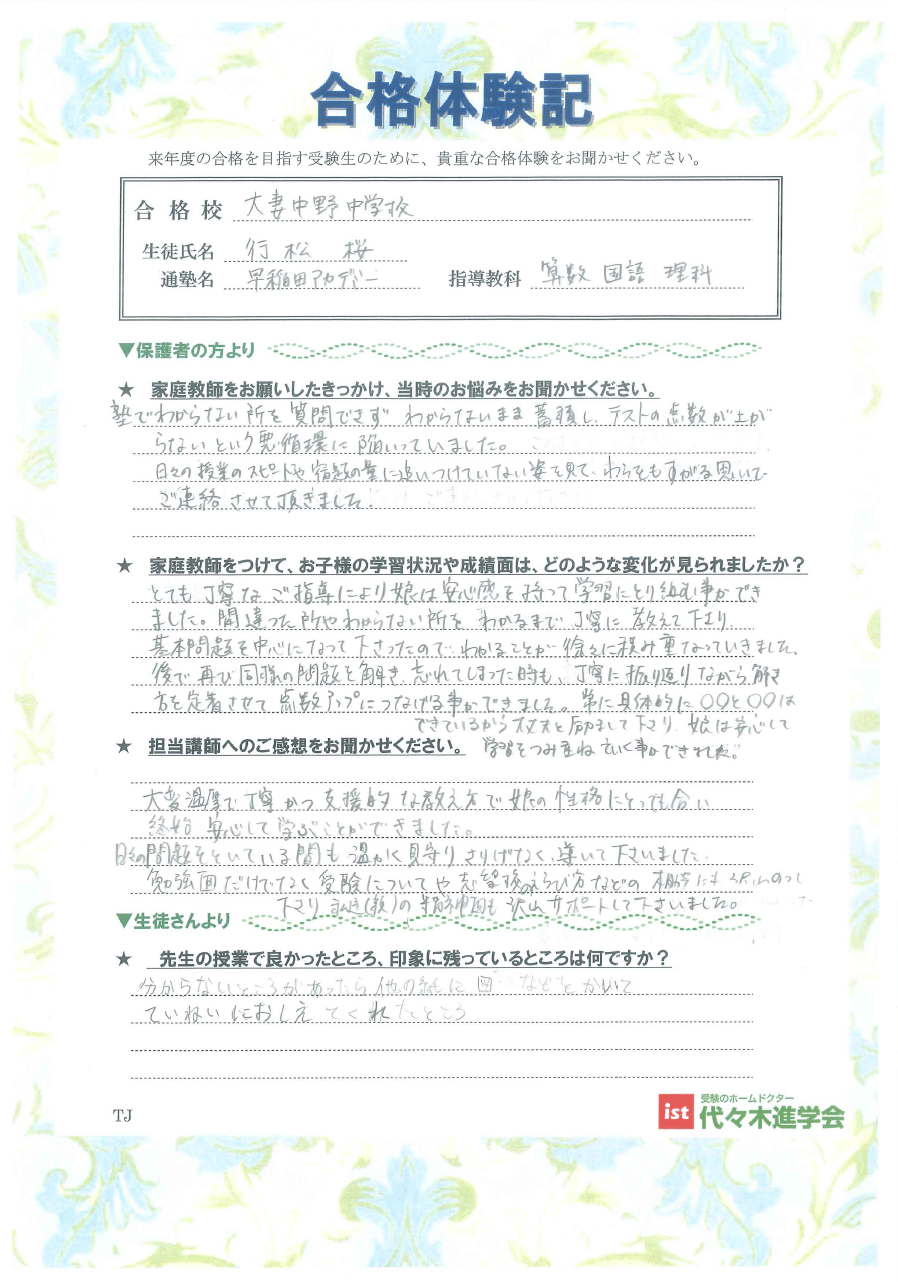 合格体験記
来年度の合格を目指す受験生のために、貴重な合格体験をお聞かせください。
合格校 大妻中野中学校
生徒氏名 行松 桜
通塾名 早稲田アカデミー 指導教科 算数 国語 理科
▼保護者の方より
★ 家庭教師をお願いしたきっかけ、当時のお悩みをお聞かせください。
塾でわからない所を質問できず わからないまま蓄積し、テストの点数が上が
らないという悪循環に陥いっていました。
日々の授業のスピードや宿題の量に追いつけていない姿を見て、わらをもすがる思いで
ご連絡させて頂きました。
★ 家庭教師をつけて、お子様の学習状況や成績面は、どのような変化が見られましたか？
とても丁寧なご指導により娘は安心感を持って学習にとり組む事ができ
ました。間違った所やわからない所を わかるまで丁寧に教えて下さり
基本問題を中心になって下さったので、わかることが徐々に積み重なっていきました。
後で再び同様の問題を解き、忘れてしまった時も、丁寧に振り返りながら解き
方を定着させて点数アップにつなげる事ができました。常に具体的に〇〇と〇〇は
できているから大丈夫と励まして下さり、娘は安心して
★ 担当講師へのご感想をお聞かせください。
学習をつみ重ねていく事ができました。
大変温厚で丁寧かつ支援的な教え方で娘の性格にとっても合い
終始 安心して学ぶことができました。
日々の問題をといている間も温かく見守りさりげなく導いて下さいました。
勉強面だけでなく受験についてや志望校のえらび方などの相談にも沢山のって
下さり (親)の精神面も沢山サポートして下さいました。
▼生徒さんより
★ 先生の授業で良かったところ、印象に残っているところは何ですか？
分からないところがあったら他の紙に図などをかいて
ていねいにおしえてくれたところ
TJ
ist 受験のホームドクター
代々木進学会